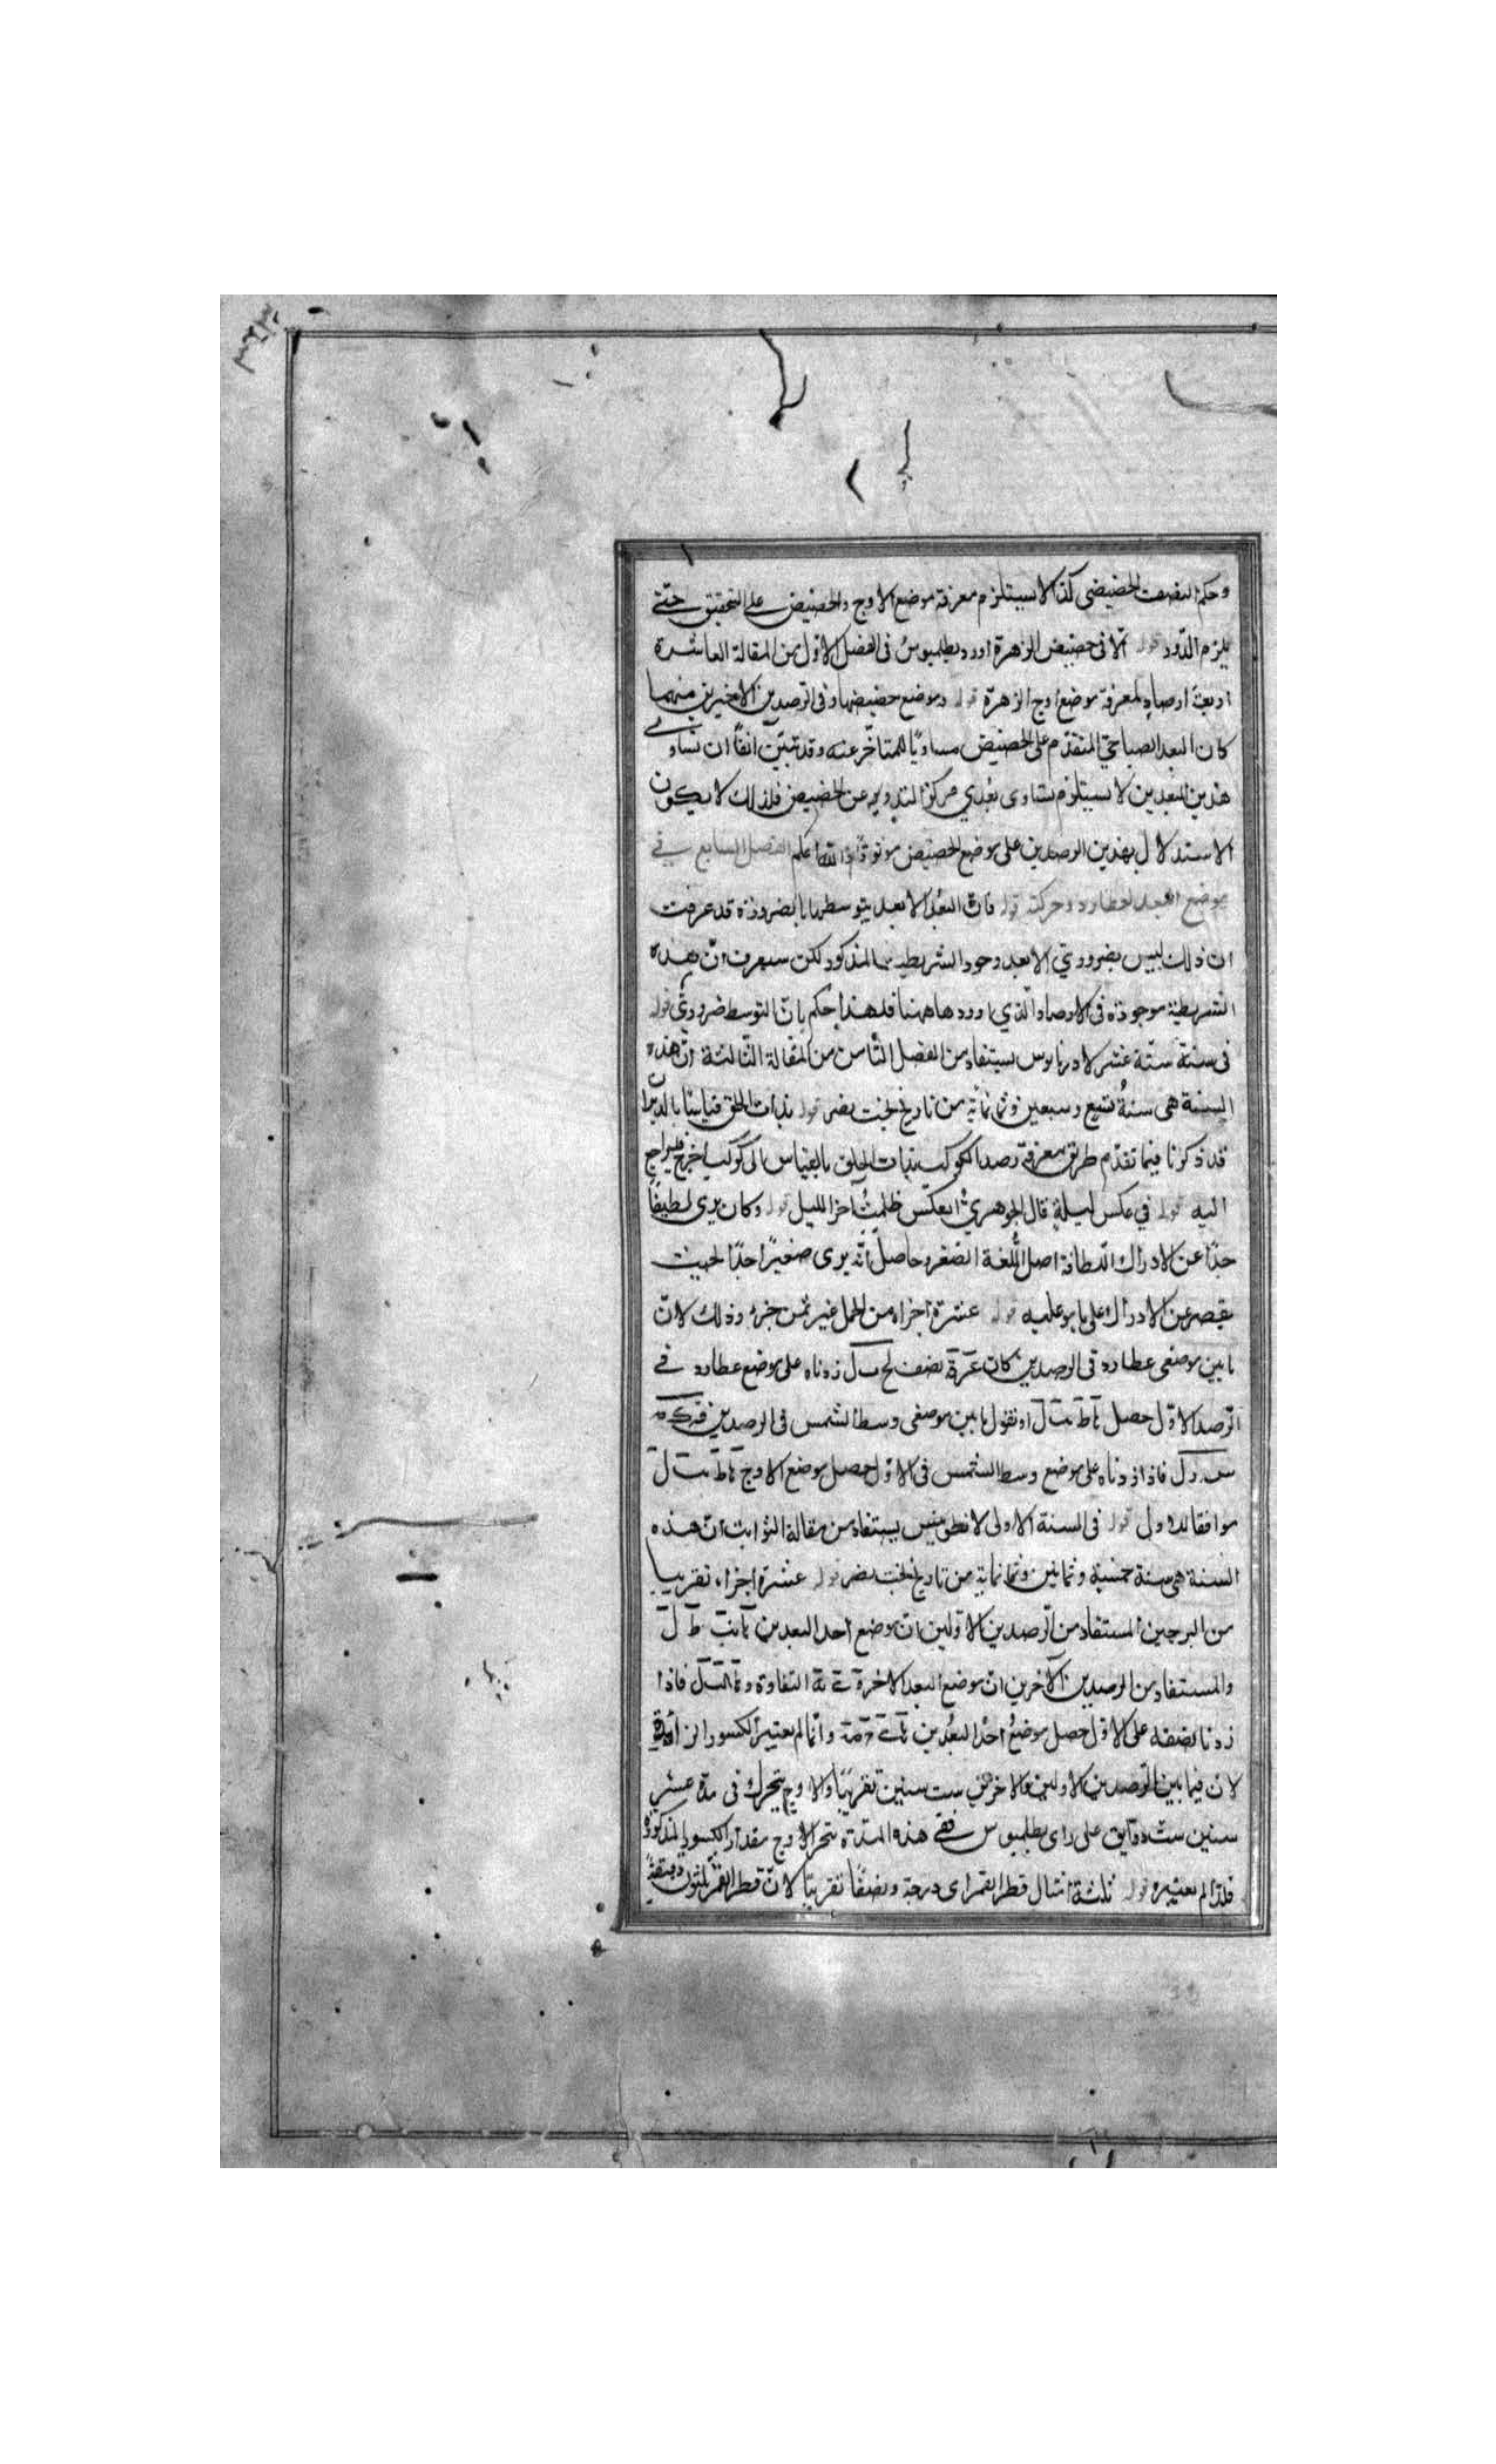 وحكم النصف الحضيضى كذا لا يستلزم معرفة موضع الاوج والحضيض على التحقيق حتى
يلزم الدّور قوله الّا فى حضيض الزهرة اورد بطلميوس فى الفصل الاوّل من المقالة العاشرة
اربعة ارصادٍ لمعرفة موضع اوج الزهرة قوله وموضع حضيضها وفى الرصدين الاخيرين منهما
كان البعد الصباحىّ المتقدّم على الحضيض مساويًا للمتاخّر عنه وقد تبيّن انفًا ان تساوى
هذين البعدين لا يستلزم تساوى بُعدي مركز التدوير عن الحضيض فلذلك لا يكون
الاستدلال بهذين الرصدين على موضع الحضيض موثوقًا والله اعلم الفصل السابع فى
موضع البعد لعطارد وحركته قوله فان البُعد الابعد يتوسطهما بالضرورة قد عرفت
ان ذلك ليس بضروريّ الا بعد وجود الشريطة المذكور لكن سيعرف انّ هذه
الشريطة موجودة فى الارصاد الّذي اوردها ههنا فلهذا حكم بانّ التوسط ضروريّ قوله
فى سنة ستّة عشر لادريانوس يستفاد من الفصل الثامن من المقالة الثالثة انّ هذه
السنة هى سنةُ تسع وسبعين وثمانمائة من تاريخ بخت نصر قوله بذات الحلق قياسًا بالدبران
قد ذكرنا فيما تقدّم طريق معرفة رصد الكوكب بذات الحلق بالقياس الى كوكب اخر فليراجع
اليه قوله فى عكس ليلةٍ قال الجوهريّ العكس ظلمة آخر الليل قوله وكان يرى لطيفًا
جدًّا عن الادراك اللطافة اصل اللغة الصغر وحاصل انّه يرى صغيرًا جدًّا بحيث
يقصر عن الادراك على ما هو عليه قوله عشرة اجزاء من الحمل غير ثمن جزء وذلك لانّ
ما بين موضعى عطارد فى الرصدين كان نصف زدناه على موضع عطارد فى
الرصد الاوّل حصل او نقول ما بين موضعى وسط الشمس فى الرصدين
فاذا زدناه على موضع وسط الشمس فى الاول حصل موضع الاوج
موافقا للاول قوله فى السنة الاولى لانطونينس يستفاد من مقالة الثوابت انّ هذه
السنة هى سنة خمسة وثمانين وثمانمائة من تاريخ بخت نصر قوله عشرة اجزاء تقريبا
من البرجين المستفاد من الرصدين الاوّلين ان موضع احد البعدين
والمستفاد من الرصدين الآخرين ان موضع البعد الاخر التفاوت فاذا
زدنا نصفه على الاوّل حصل موضعُ احد البُعدين وانّما لم يعتبر الكسور الزائدة
لانّ فيما بين الرصدين الاولين والاخرين ست سنين تقريبًا والاوج يتحرك فى مدة عشر
سنين ستّ دقايق على راى بطلميوس ففى هذه المدّة يتحرّك الاوج مقدار الكسور المذكورة
فلذا لم يعتبره قوله ثلثة امثال قطر القمر اى درجة ونصفًا تقريبًا لانّ قطر القمر ثلثون دقيقةً